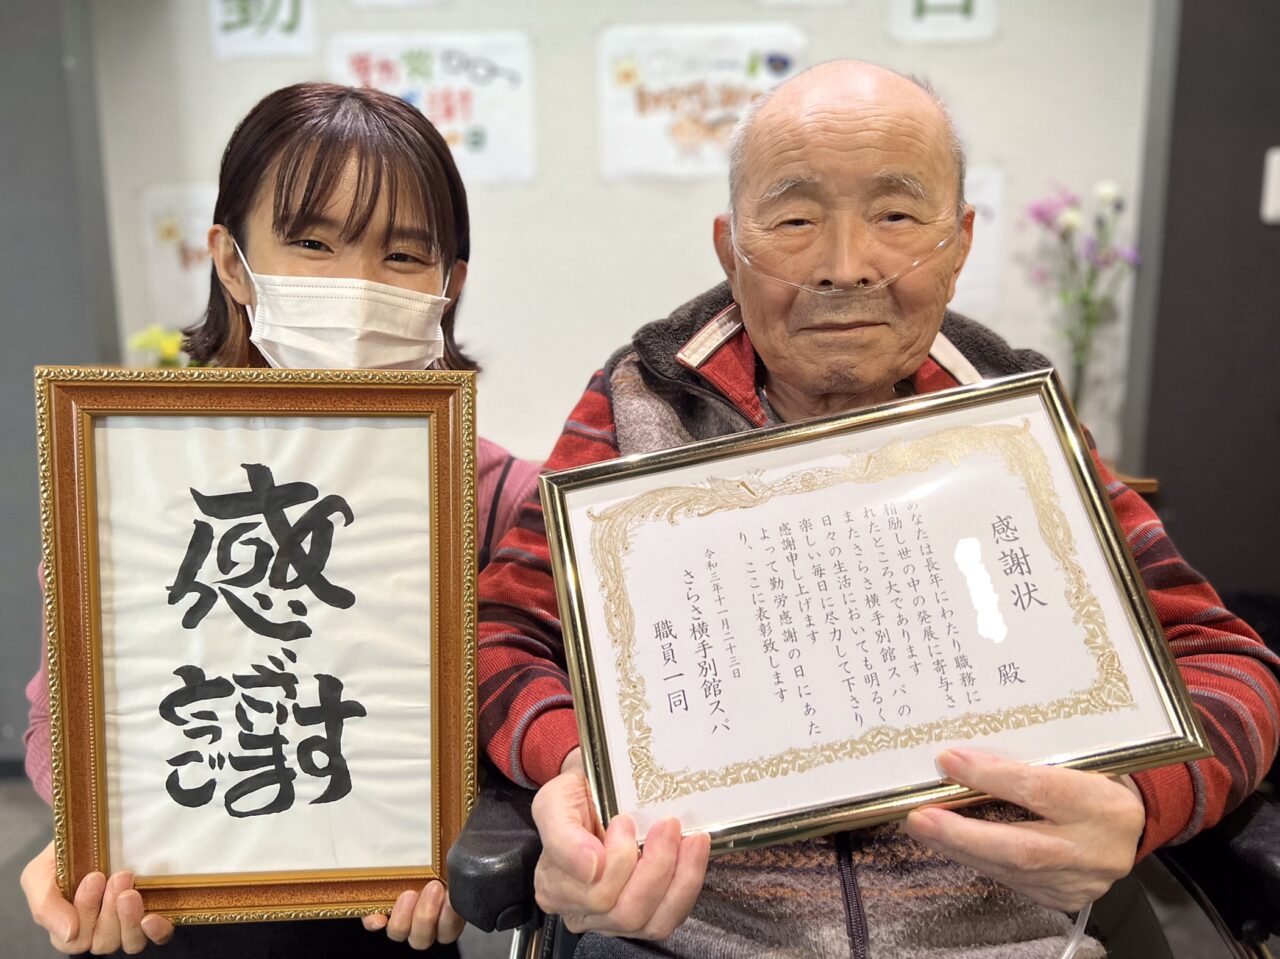 勤
日
感
とうご
ざいま
す
感謝状
殿
あなたは長年にわたり職務に
精励し世の中の発展に寄与さ
れたところ大であります
またさらさ横手別館スパの
日々の生活においても明るく
楽しい毎日に尽力して下さり
感謝申し上げます
よって勤労感謝の日にあた
り、ここに表彰致します
令和三年十一月二十三日
さらさ横手別館スパ
職員一同